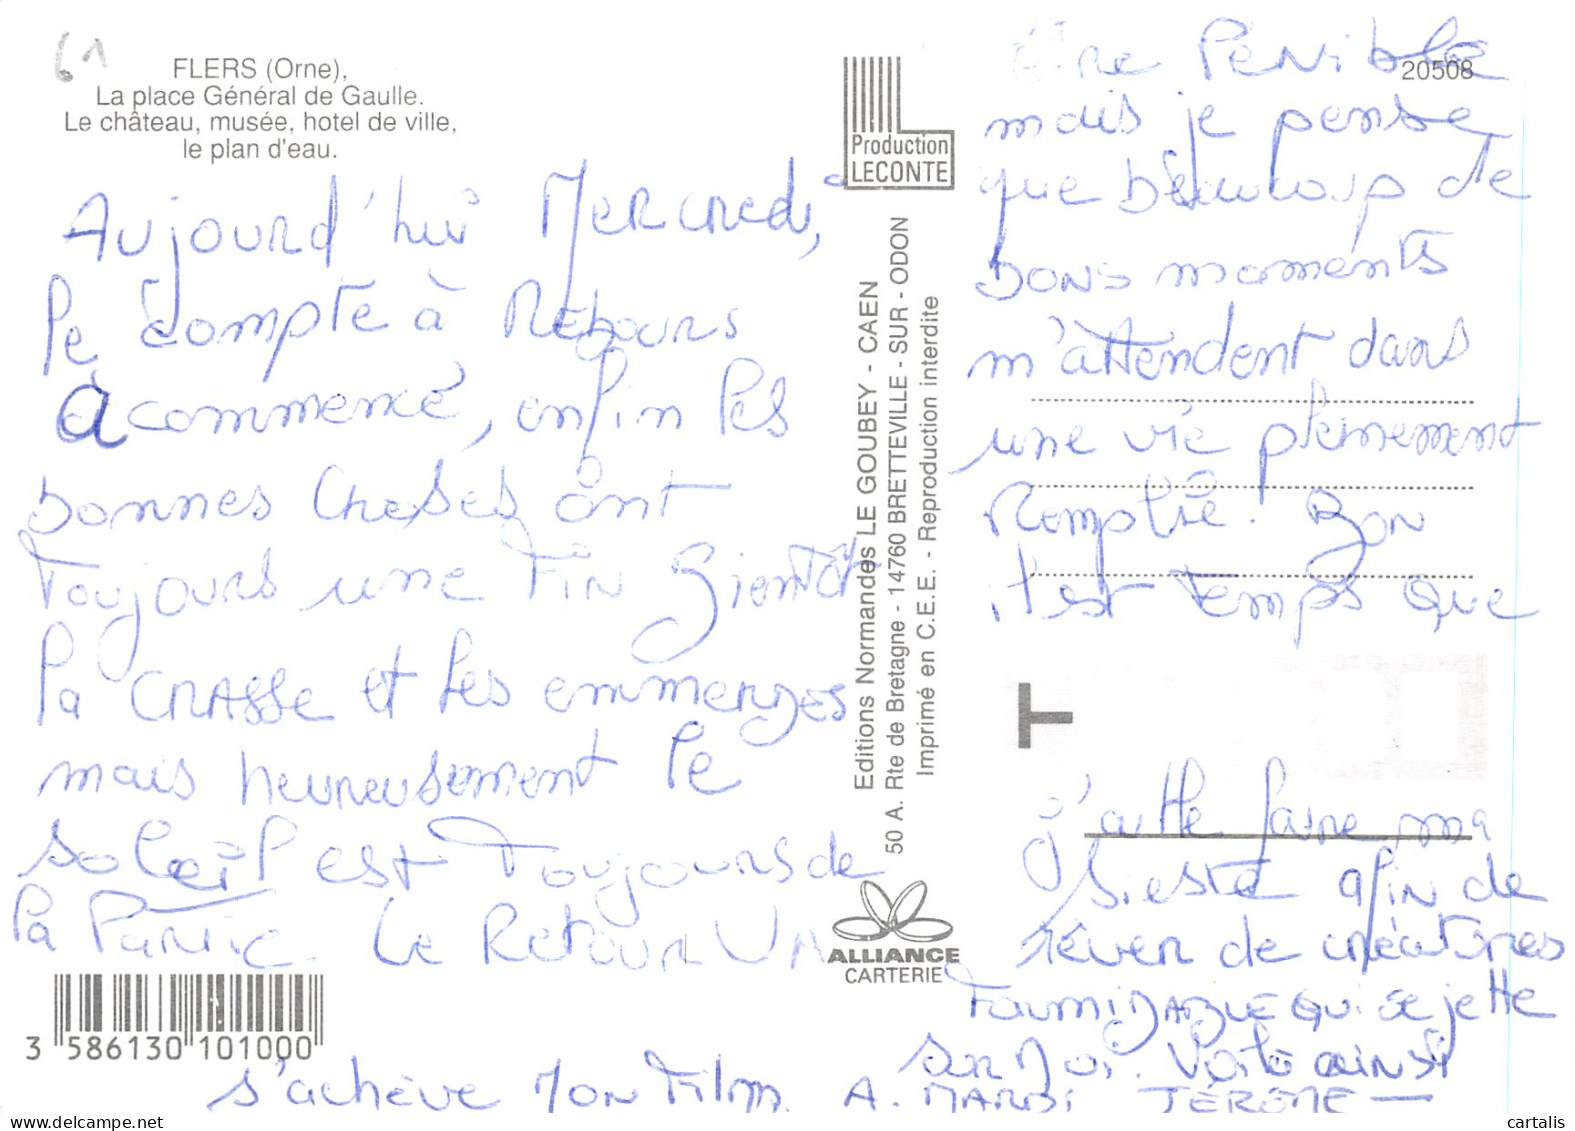 61
FLERS (Orne),
La place Général de Gaulle.
Le château, musée, hotel de ville,
le plan d'eau.
Aujourd'hui Mercredi,
le compte à Rebours
a commencé, enfin les
bonnes choses ont
toujours une fin Bientôt
la crasse et les emmerdes
mais heureusement le
soleil est toujours de
la partie. Le Retour va
être Pénible
mais je pense
que beaucoup de
bons moments
m'attendent dans
une vie pleinement
Remplie. Bon
il est temps que
j'aille faire ma
sieste afin de
rêver de créatures
qui se jette
sur moi. Voilà ainsi
s'achève mon film. A. MARDI JÉRÔME
Production
LECONTE
20508
Editions Normandes LE GOUBEY - CAEN
50 A. Rte de Bretagne - 14760 BRETTEVILLE - SUR - ODON
Imprimé en C.E.E. - Reproduction interdite
T
ALLIANCE
CARTERIE
3 586130 101000
cartalis